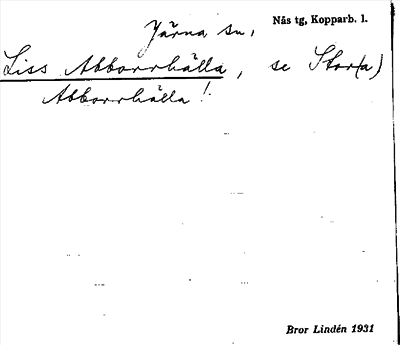 Järna sn, Nås tg, Kopparb. l.
Liss Abborrhälla, se Stor(a)
Abborrhälla!
Bror Lindén 1931